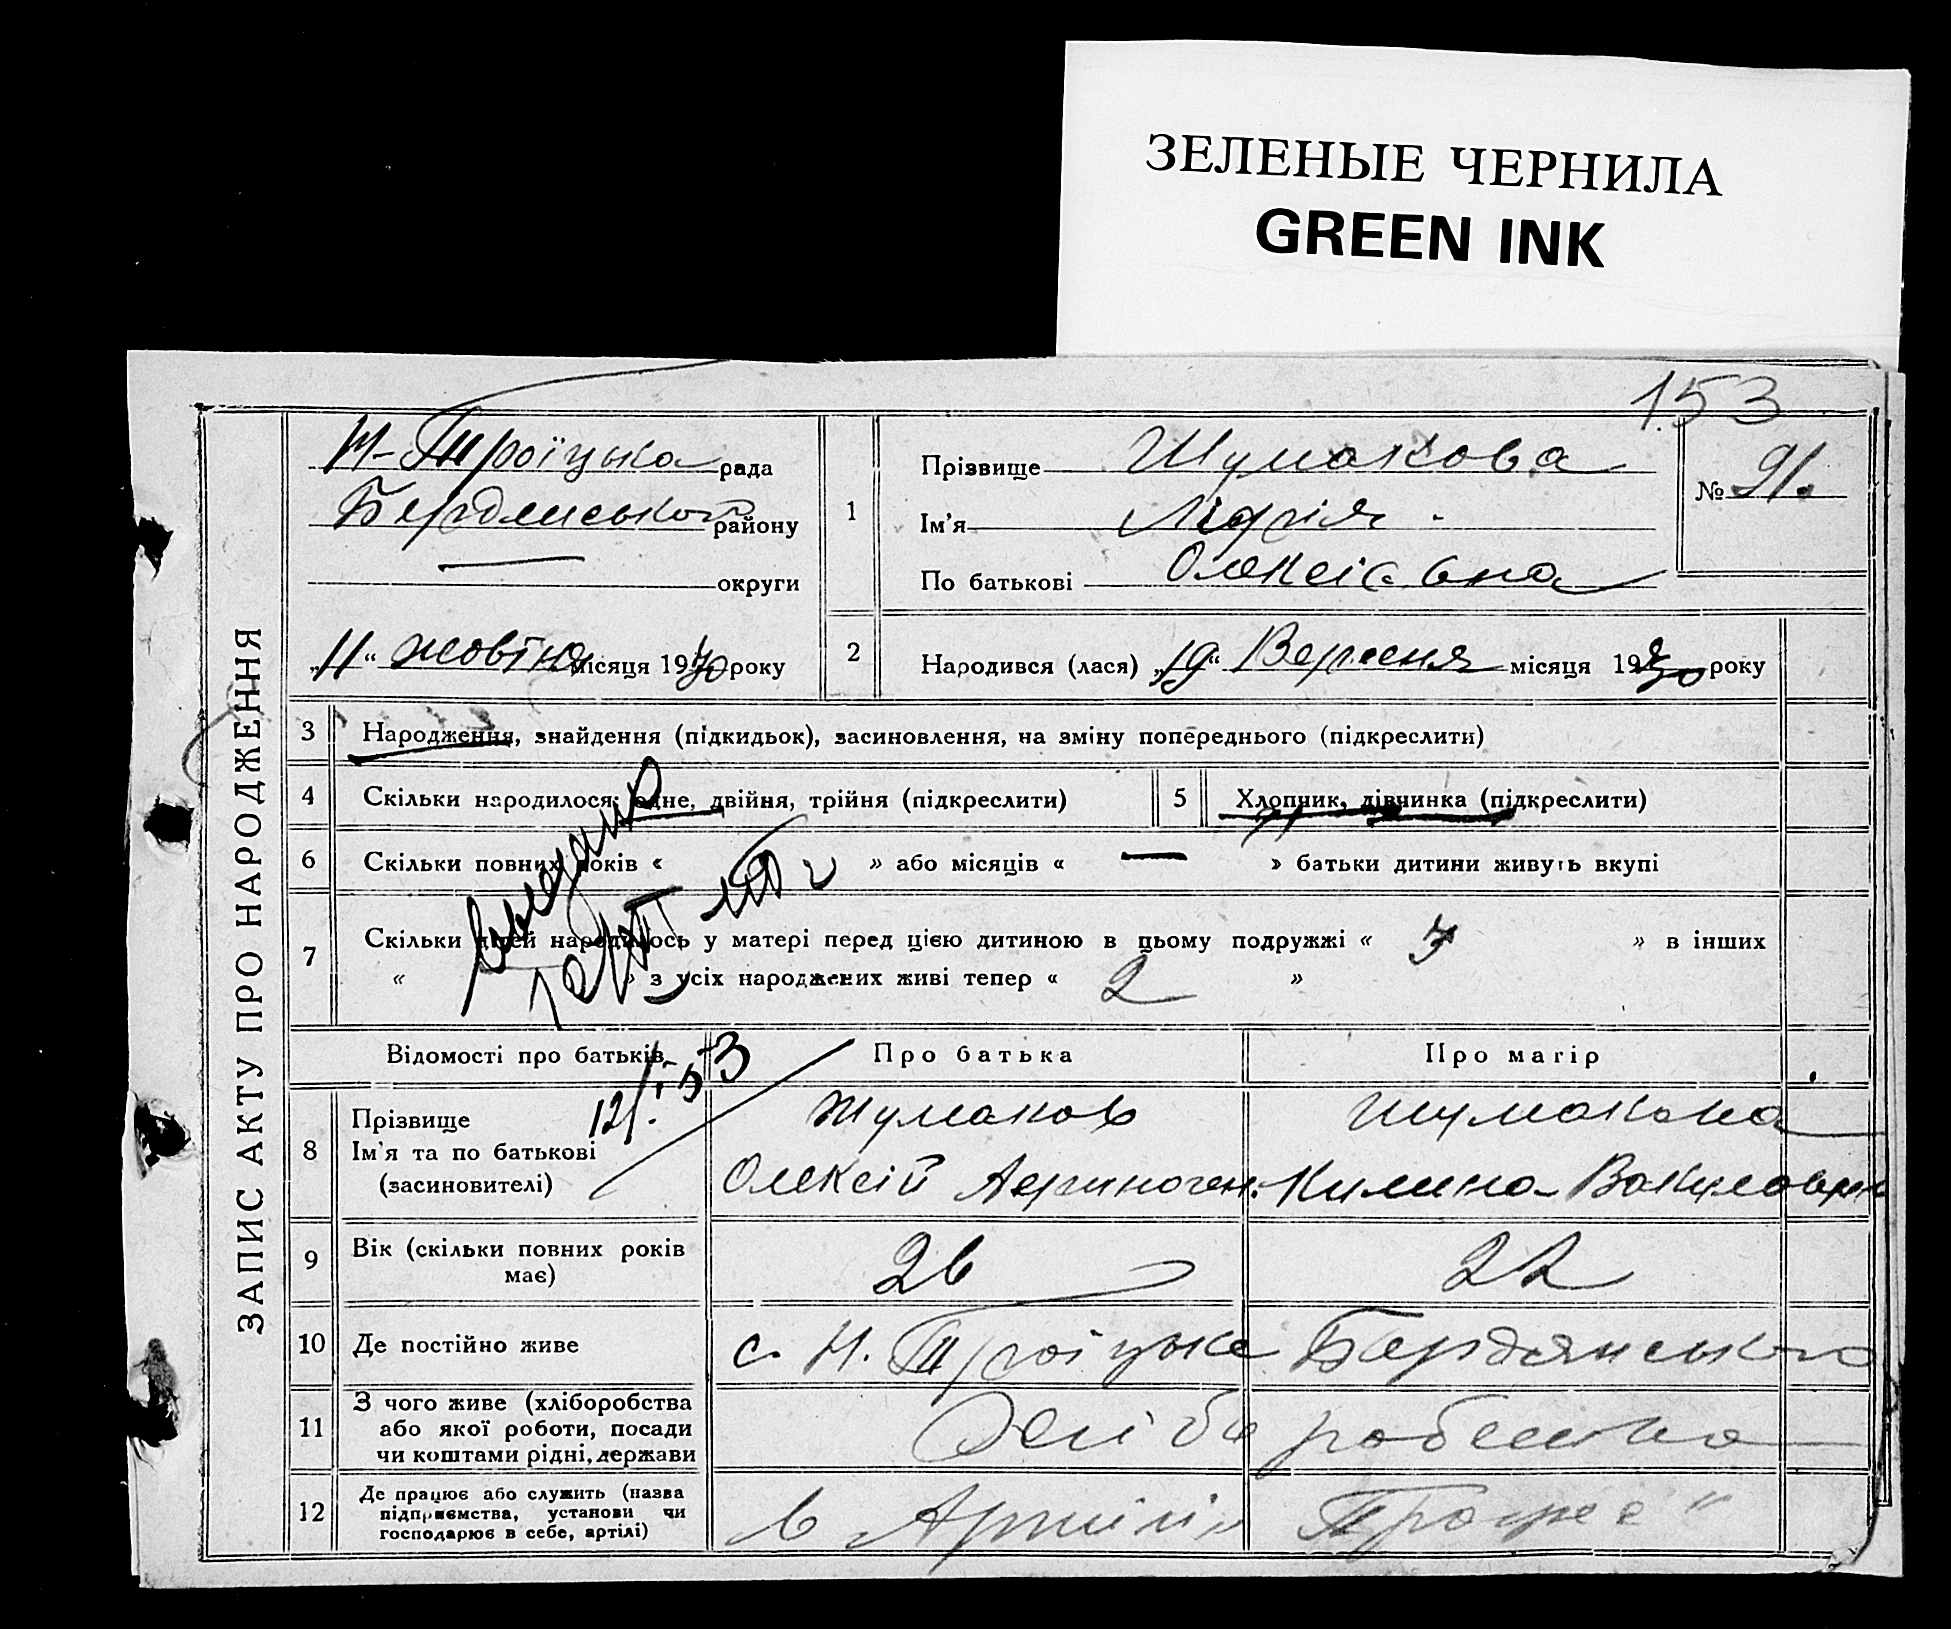 ЗЕЛЕНЫЕ ЧЕРНИЛА
GREEN INK
153
ЗАПИС АКТУ ПРО НАРОДЖЕННЯ
Н-Троїцька рада
Бердянського району
округи
„11“ жовтня місяця 1930 року
1
Прізвище Шумакова
Ім'я Лідія
По батькові Олексієвна
№ 91.
2
Народився (лася) „19“ Вересня місяця 1930 року
3 Народження, знайдення (підкидьок), засиновлення, на зміну попереднього (підкреслити)
4 Скільки народилося: одне, двійня, трійня (підкреслити)
5 Хлопчик, дівчинка (підкреслити)
6 Скільки повних років « » або місяців « — » батьки дитини живуть вкупі
7 Скільки дітей народилось у матері перед цією дитиною в цьому подружжі « » в інших
« » з усіх народжених живі тепер « 2 »
12/I-53
Відомості про батьків Про батька Про матір
8 Прізвище Шумаков Шумакова
Ім'я та по батькові
(засиновителі) Олексій Килина
9 Вік (скільки повних років має) 26 22
10 Де постійно живе с. Н. Троїцьке Бердянського
11 З чого живе (хліборобства
або якої роботи, посади
чи коштами рідні, держави
12 Де працює або служить (назва
підприємства, установи чи
господарює в себе, артілі) в Артілі „Прогрес“